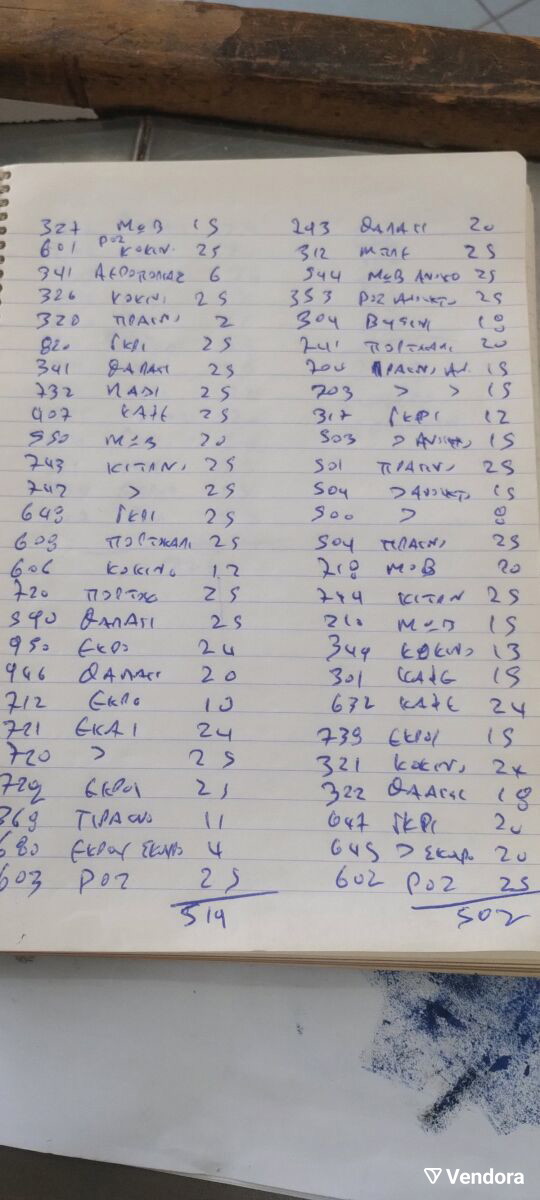 327 ΜΩΒ 15
601 ΡΟΖ ΚΟΚΙΝ. 25
341 6
326 ΚΟΚΙΝΙ 25
320 2
820 ΓΚΡΙ 25
341 ΘΑΛΑΣΙ 25
732 25
407 ΚΑΦΕ 25
550 ΜΩΒ 20
743 ΚΙΤΡΙΝΟ 25
742 > 25
643 ΓΚΡΙ 25
603 ΠΟΡΤΚΑΛΙ 25
606 ΚΟΚΙΝΟ 12
720 25
590 ΘΑΛΑΣΙ 25
950 ΕΚΡΟ 24
946 ΘΑΛΑΣΙ 20
712 ΕΚΡΟ 10
721 24
720 > 25
729 ΕΚΡΟΥ 25
369 11
680 4
603 ΡΟΖ 25
519
243 ΘΑΛΑΣΙ 20
312 ΜΠΛΕ 25
544 ΜΩΒ 25
353 ΡΟΖ ΑΝΙΚΤΟ 25
304 18
741 ΠΟΡΤΚΑΛΙ 20
704 15
703 > > 15
317 ΓΚΡΙ 12
503 > 15
501 ΠΡΑΣΙΝΟ 25
504 > ΑΝΙΚΤΟ 15
500 > 8
504 ΠΡΑΣΙΝΟ 25
718 ΜΩΒ 20
744 ΚΙΤΡΙΝ 25
210 ΜΩΒ 15
349 ΚΟΚΙΝΟ 13
301 ΚΑΦΕ 15
632 ΚΑΦΕ 24
739 ΕΚΡΟΥ 15
321 ΚΟΚΙΝΟ
322 ΘΑΛΑΣΙ 18
647 ΓΚΡΙ 20
645 > 20
602 ΡΟΖ 25
502
Vendora